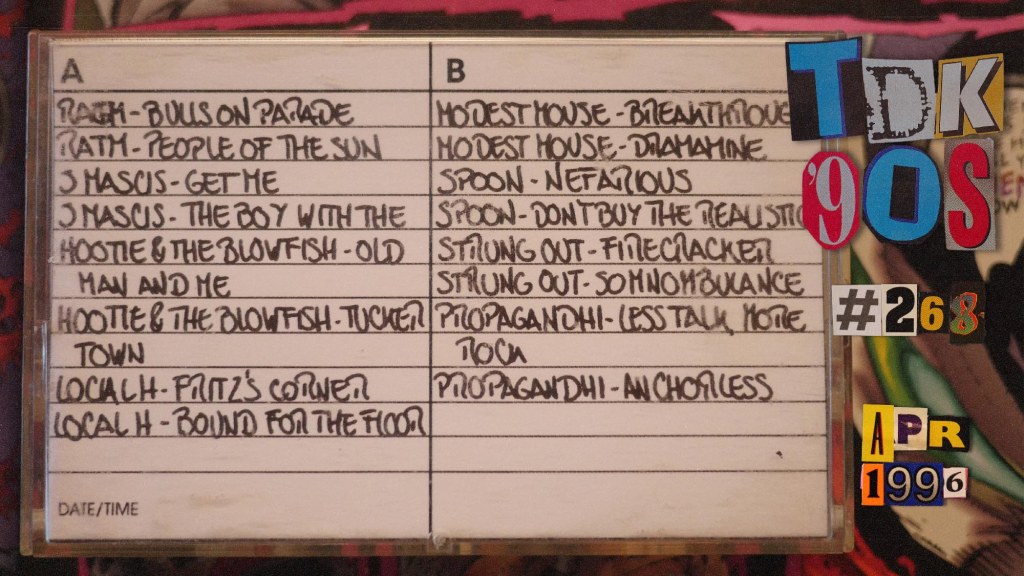 A
RATM - BULLS ON PARADE
RATM - PEOPLE OF THE SUN
J MASCIS - GET ME
J MASCIS - THE BOY WITH THE
HOOTIE & THE BLOWFISH - OLD
MAN AND ME
HOOTIE & THE BLOWFISH - TUCKER
TOWN
LOCAL H - FRITZ'S CORNER
LOCAL H - BOUND FOR THE FLOOR
DATE/TIME
B
MODEST MOUSE - BREAKTHROUG
MODEST MOUSE - DRAMAMINE
SPOON - NEFARIOUS
SPOON - DON'T BUY THE REALISTIC
STRUNG OUT - FIRECRACKER
STRUNG OUT - SOMNOMBULANCE
PROPAGANDHI - LESS TALK, MORE
ROCK
PROPAGANDHI - ANCHORLESS
TDK
'90S
#268
APR
1996